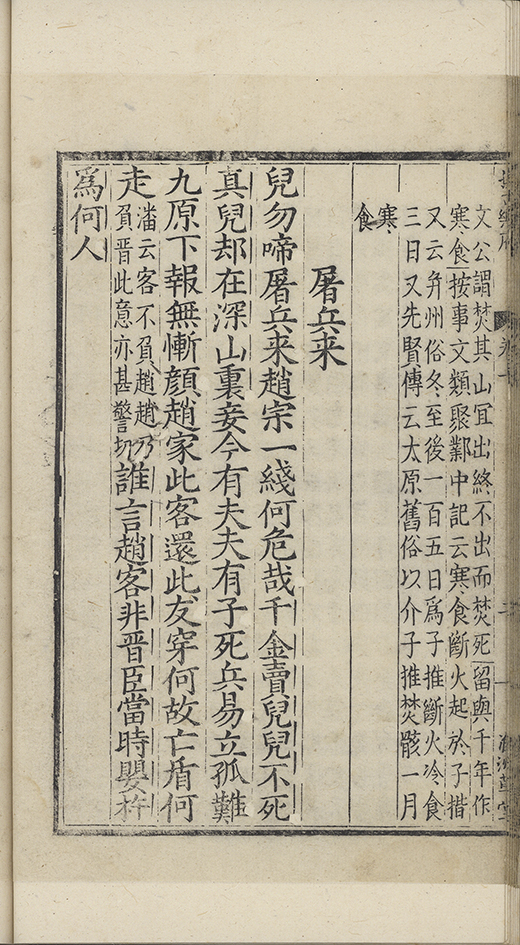 文公謂焚其山宜出終不出而焚死留與千年作
寒食按事文類聚鄴中記云寒食斷火起於子推
又云并州俗冬至後一百五日爲子推斷火冷食
三日又先賢傳云太原舊俗以介子推焚骸一月
寒
食
屠兵来
兒勿啼屠兵来趙宗一綫何危哉千金賣兒兒不死
真兒却在深山裏妾今有夫夫有子死兵易立孤難
九原下報無慚顔趙家此客還此友穿何故亡盾何
走潘云客不負趙趙乃負晋此意亦甚警切誰言趙客非晋臣當時嬰杵
爲何人